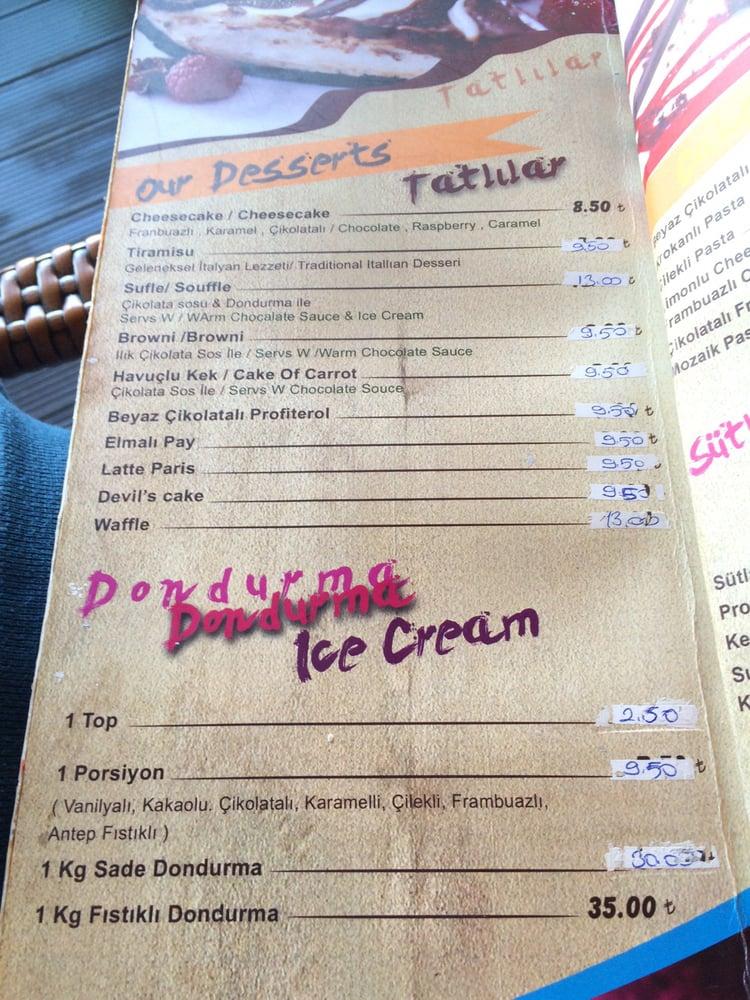 Tatlılar
our Desserts
Tatlılar
Cheesecake / Cheesecake 8.50 ₺
Franbuazlı , Karamel , Çikolatalı / Chocolate , Raspberry , Caramel
Tiramisu 9.50 ₺
Geleneksel İtalyan Lezzeti/ Traditional Itallian Desseri
Sufle/ Souffle 13.00 ₺
Çikolata sosu & Dondurma ile
Servs W / WArm Chocalate Sauce & Ice Cream
Browni /Browni 9.50 ₺
Ilık Çikolata Sos İle / Servs W /Warm Chocolate Sauce
Havuçlu Kek / Cake Of Carrot 9.50
Çikolata Sos İle / Servs W Chocolate Souce
Beyaz Çikolatalı Profiterol 9.50 ₺
Elmalı Pay 9.50 ₺
Latte Paris 9.50
Devil's cake 9.50
Waffle 13.00
Dondurma
Dondurma
Ice Cream
1 Top 2.50
1 Porsiyon 9.50 ₺
( Vanilyalı, Kakaolu. Çikolatalı, Karamelli, Çilekli, Frambuazlı,
Antep Fıstıklı )
1 Kg Sade Dondurma 30.00
1 Kg Fıstıklı Dondurma 35.00 ₺
eyaz Çikolatalı
rokanlı Pasta
ilekli Pasta
imonlu Chee
rambuazlı C
ikolatalı Fr
Mozaik Pas
Sütl
Sütl
Pro
Ke
Su
K